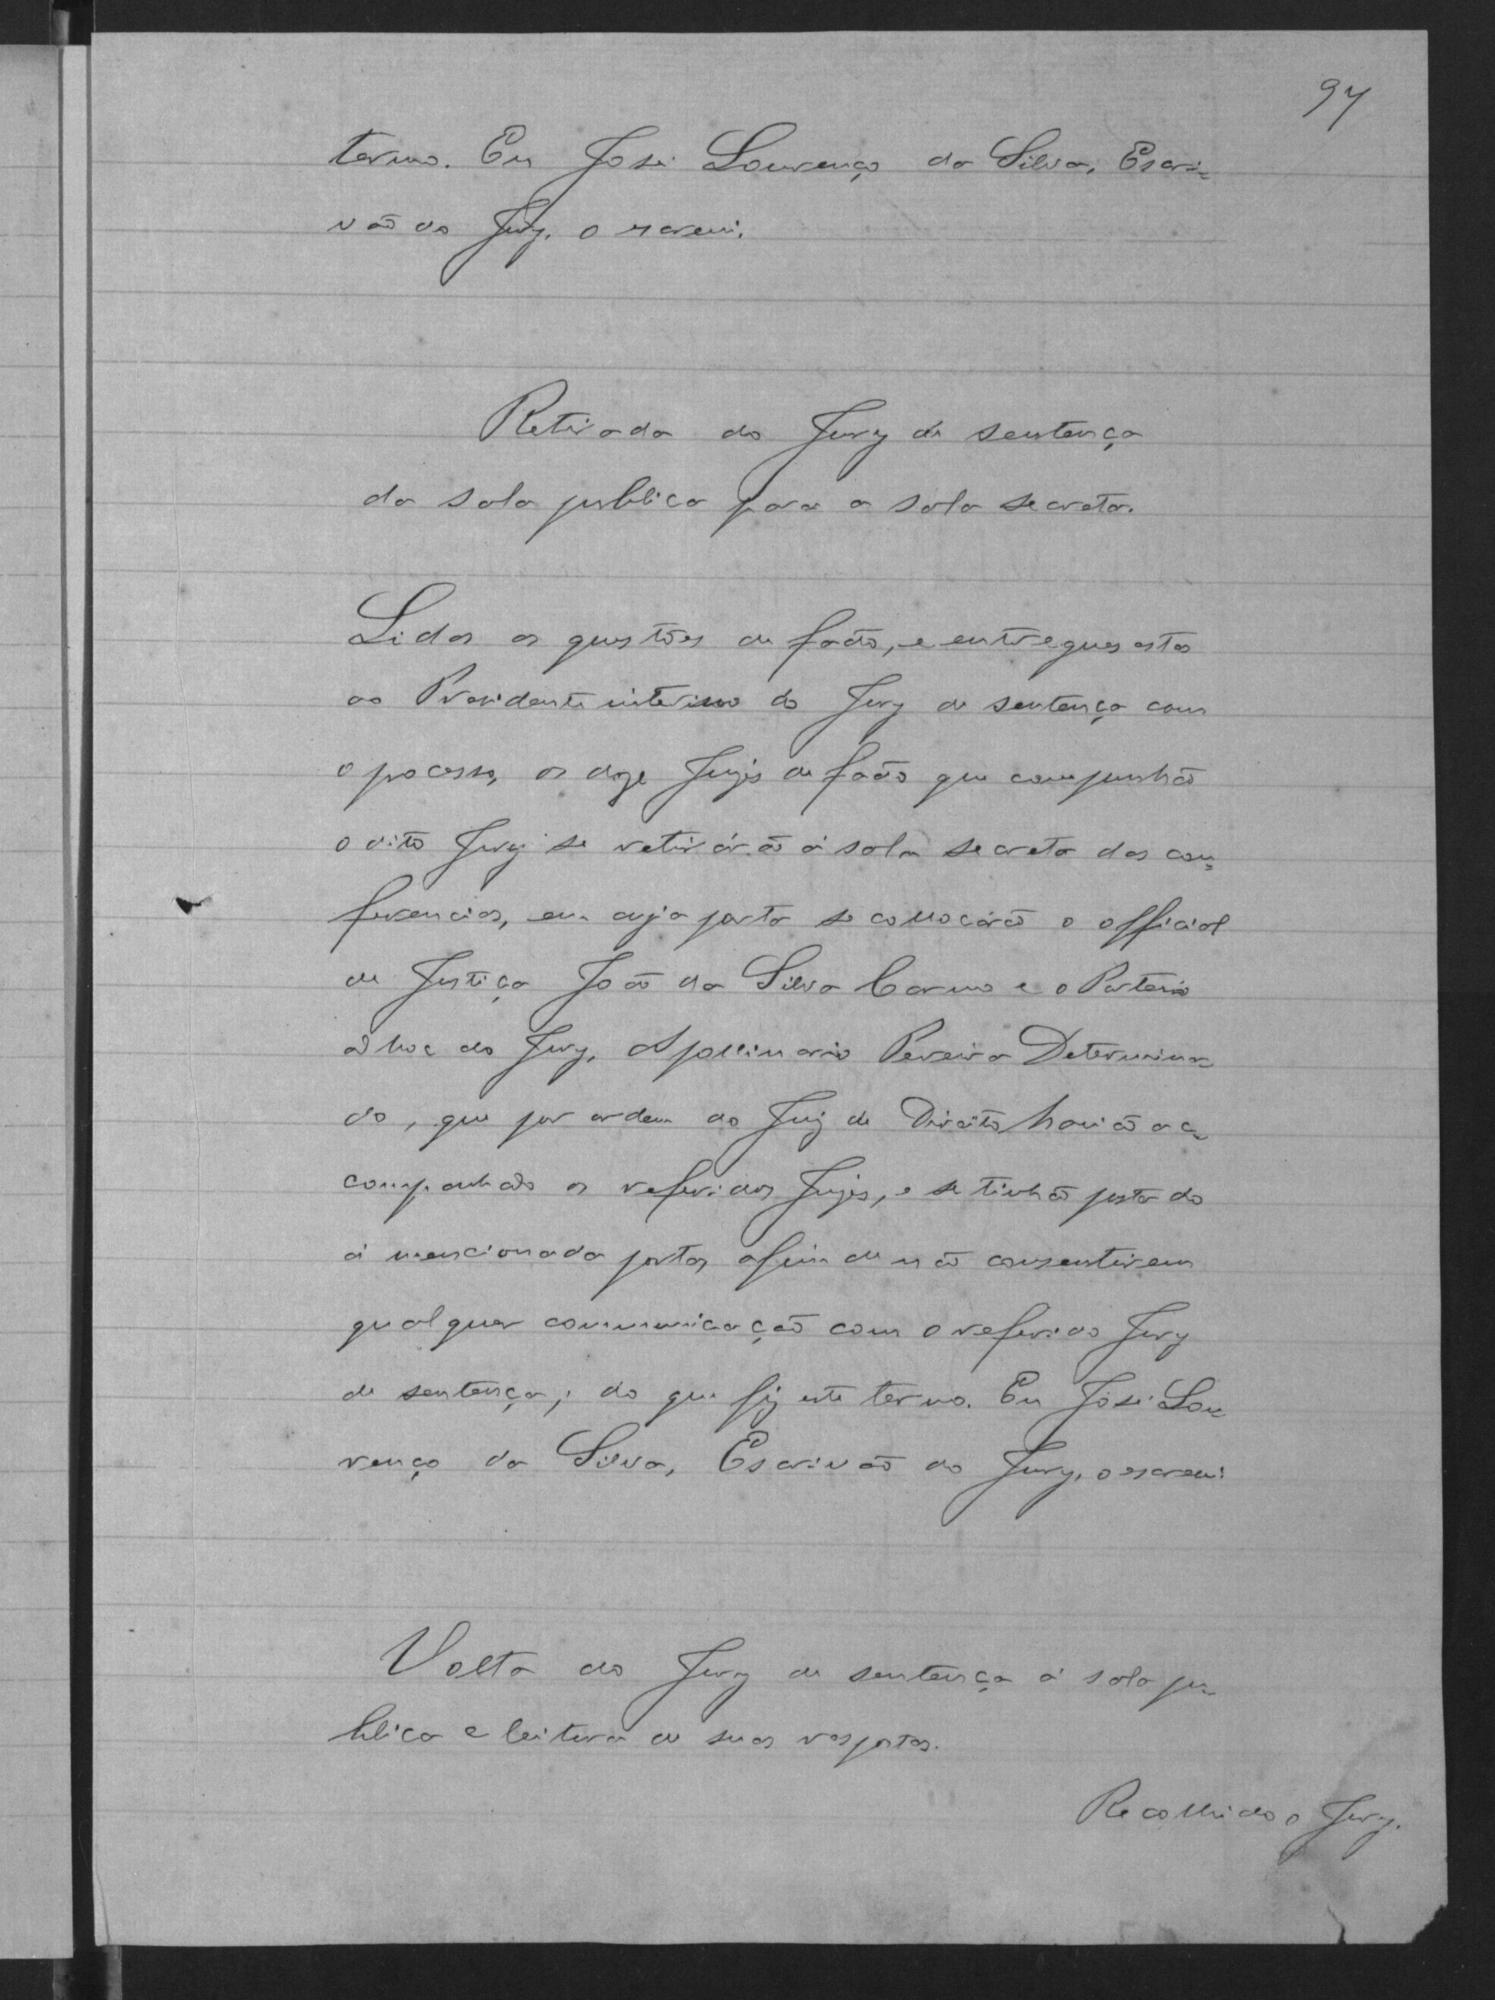 97
termo. Eu José Lourenço da Silva, Escri-
vão do Jury, o escrevi.
Retirada do Jury de sentença
da sala publica para a sala secreta.
Lidas as questões de facto, e entregues estas
ao Presidente interino do Jury de sentença com
o processo, os doze Juizes de facto que compunhão
o dito Jury se retirárão á sala secreta das con-
ferencias, em cuja porta se collocárão o official
de Justiça João da Silva Carmo e o Porteiro
ad hoc do Jury, Apollinario Pereira Determina-
do, que por ordem do Juiz de Direito havião ac-
companhado os referidos Juizes, e se tinhão postado
á mencionada porta, afim de não consentirem
qualquer communicação com o referido Jury
de sentença; do que fiz este termo. Eu José Lou-
renço da Silva, Escrivão do Jury, o escrevi
Volta do Jury de sentença á sala pu-
blica e leitura de suas respostas.
Recolhido o Jury.